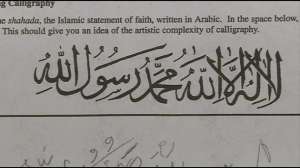 ng Calligraphy
he shahada, the Islamic statement of faith, written in Arabic. In the space below,
This should give you an idea of the artistic complexity of calligraphy.
لا إله إلا الله محمد رسول الله